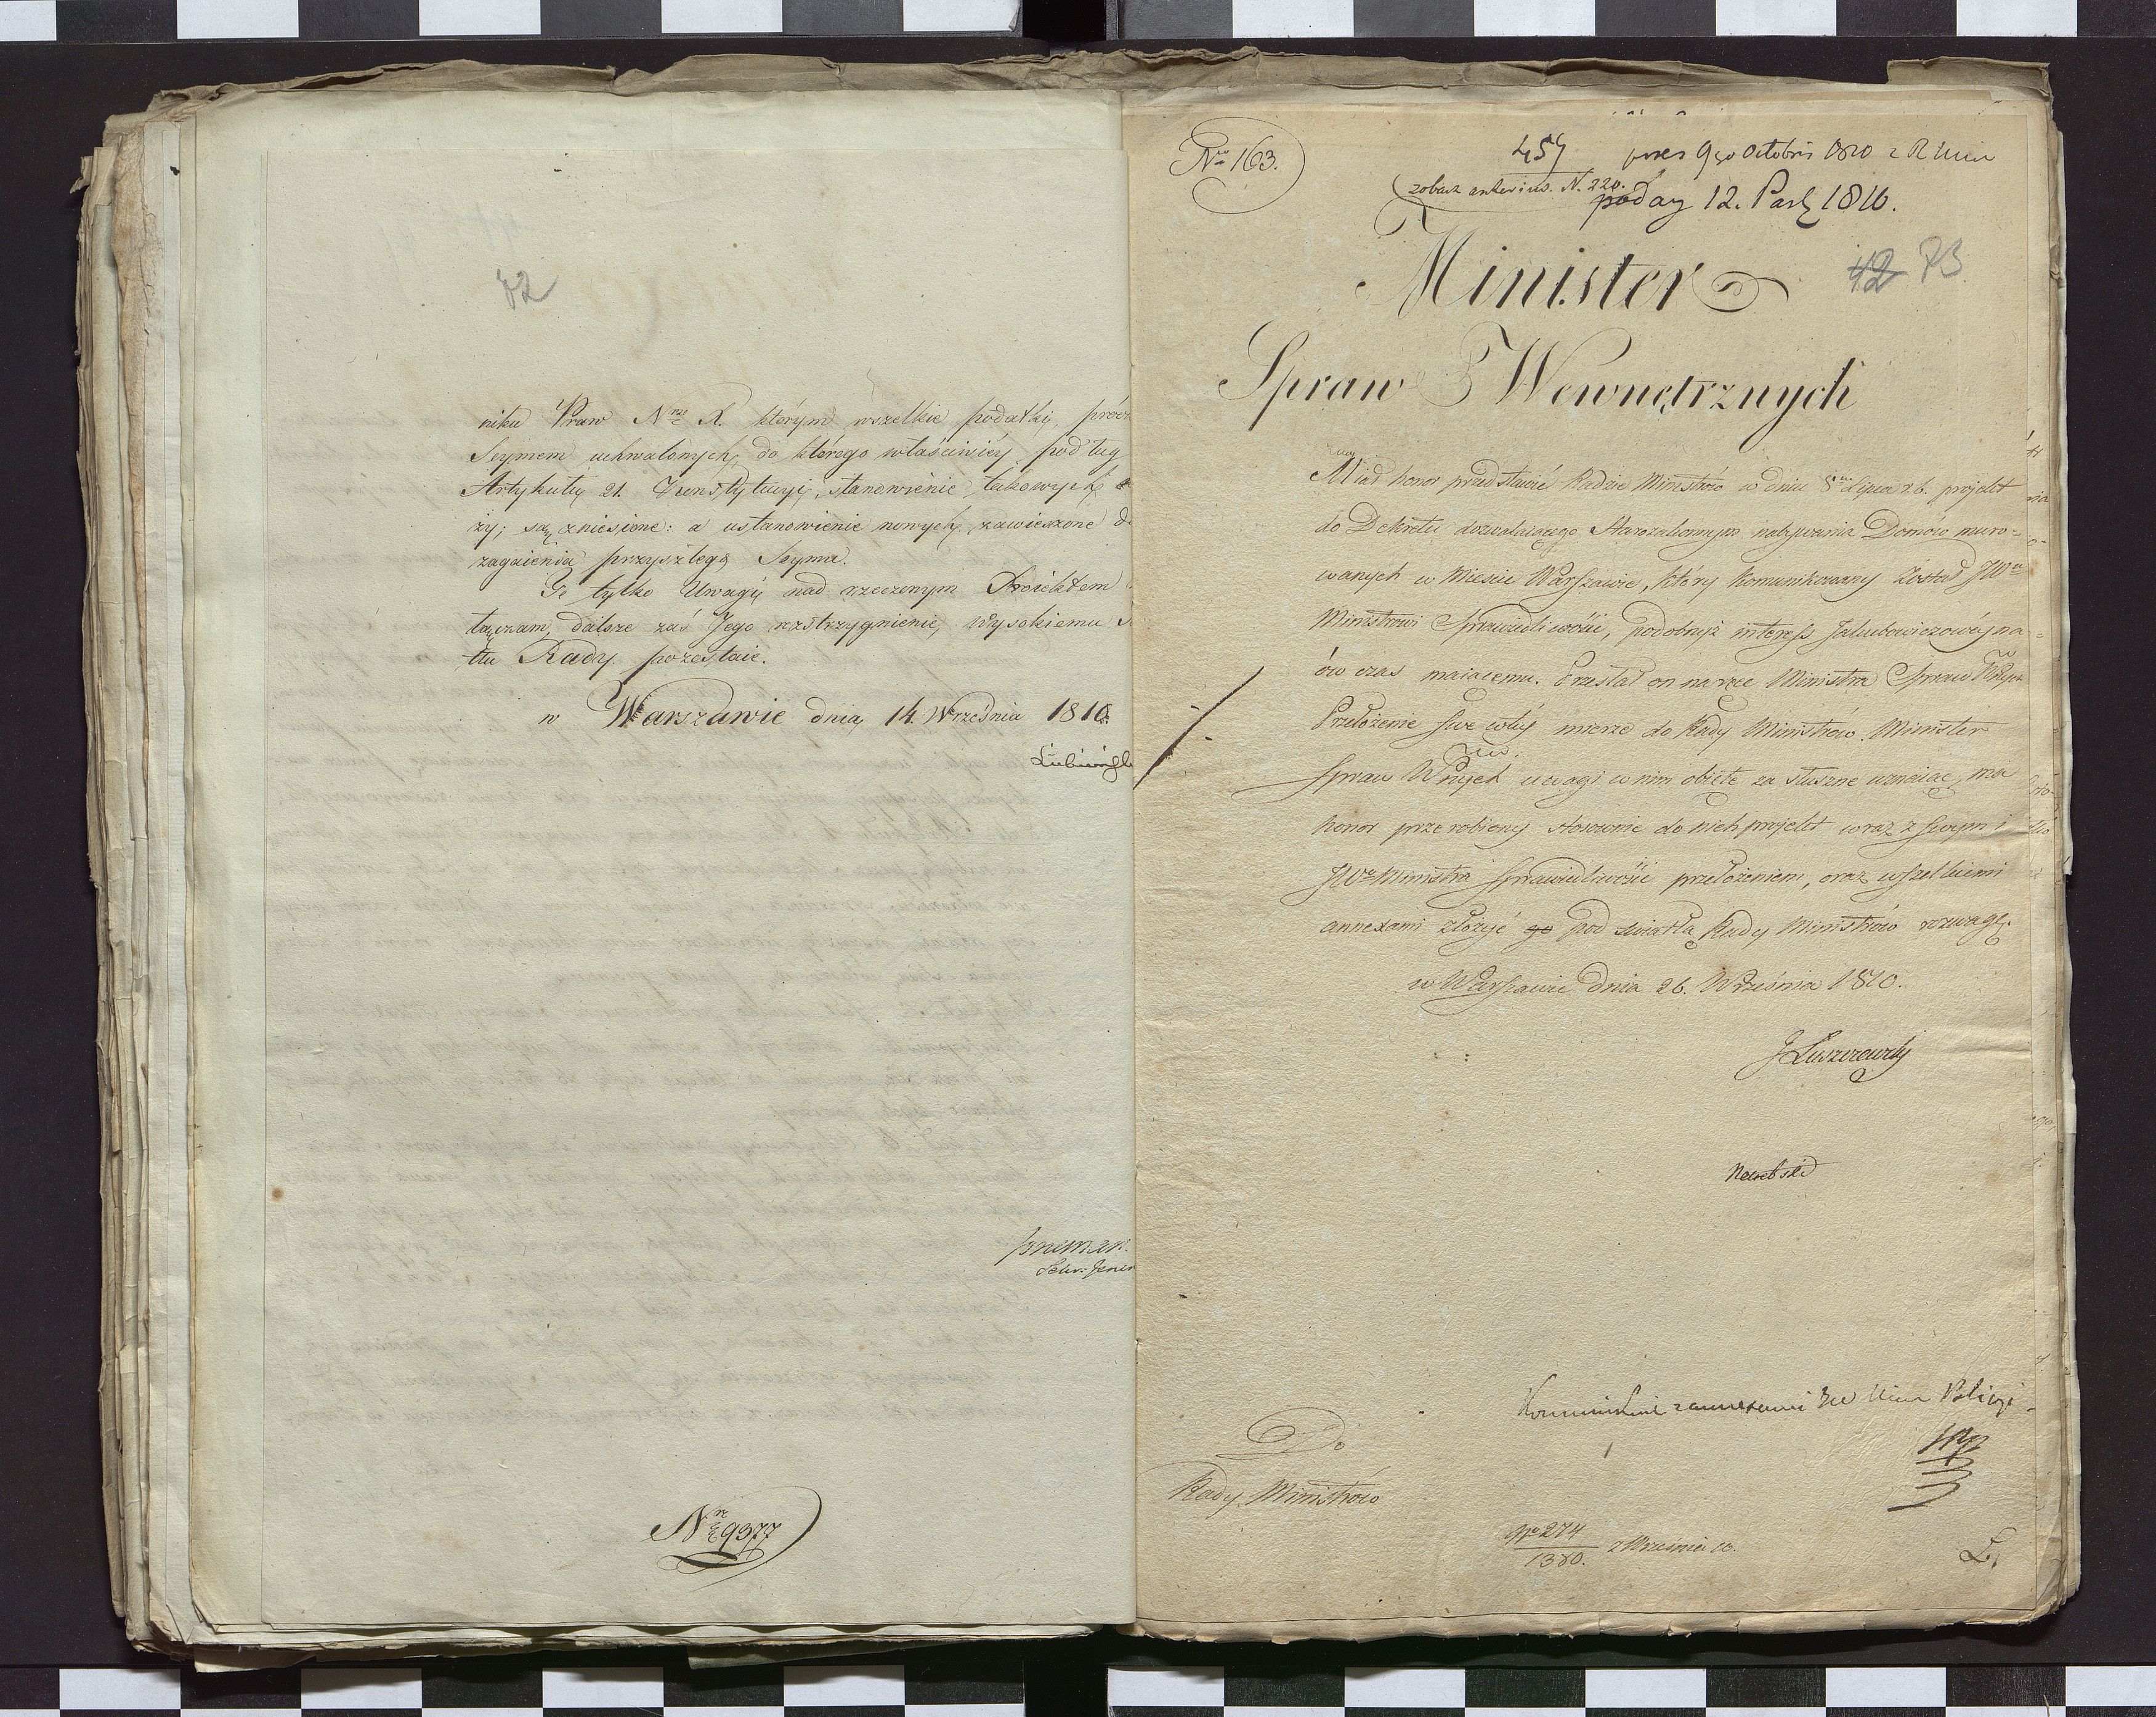 72
niku Praw Nrze X. którym wszelkie podatki, prócz
Seymem uchwalonych, do którego właściwiey podług
Artykułu 21. Konstytucyi, stanowienie takowych
ży; są zniesione: a ustanowienie nowych, zawieszone do
zagaienia przyszłego Seymu.
Te tylko Uwagi nad rzeczonym Proiektem
łączam, dalsze zaś Jego rozstrzygnienie, Wysokiemu
tłu Rady pozostaie.
w Warszawie dnia 14. Września 1810.
Lubieńsk
Sekr: Jener
Nr 9377
Nro 163.
457 pres 9go Octobris 1810 z R Min
(zobacz anterius. N. 220.
poday 12. Paź 1810.
42 73
Minister
Spraw Wewnętrznych
Miał honor przedstawić Radzie Ministrów w dniu 5 Lipca r. b. projekt
do Dekretu dozwalaiącego Starozakonnym nabywania Domów muro=
wanych w Mieście Warszawie, który kommunikowany został JWu
Ministrowi Sprawiedliwości, podobnyż interess Jakubowiczowéj na=
ów czas maiącemu. Przesłał on na ręce Ministra Spraw Wnętr
Przełożenie swe w téj mierze do Rady Ministrów. Minister
Spraw Wnych uwagi w nim obięte za słuszne uznaiąc, ma
honor przerobiony stosownie do nich projekt wraz z swym i
JWo Ministra Sprawiedliwości przełożeniem, oraz wszelkiemi
annexami złożyć go pod światłą Rady Ministrów rozwagę.
w Warszawie dnia 26. Września 1810.
J Łuszczewski
Karebski
z annexami do Min Policyi
Do
Rady Ministrów
No 274
1380. z Września 10.
L.